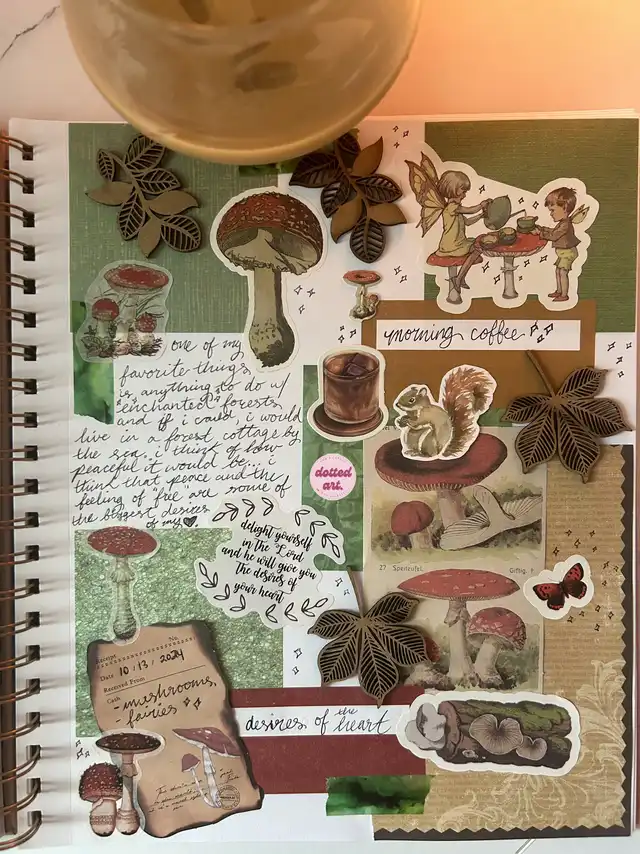 morning coffee
one of my
favorite things
is anything to do w/
"enchanted" forests
and if i could, i would
live in a forest cottage by
the sea. i think of how
peaceful it would be... i
think that peace and the
feeling of "free" are some of
the biggest desires
of my
dotted
art.
delight yourself
in the Lord
and he will give you
the desires of
your heart
27 Speiteufel. Giftig. †
Receipt No.
Date 10/13/2024
Received From
Cash
- mushrooms,
- fairies
desires of the heart